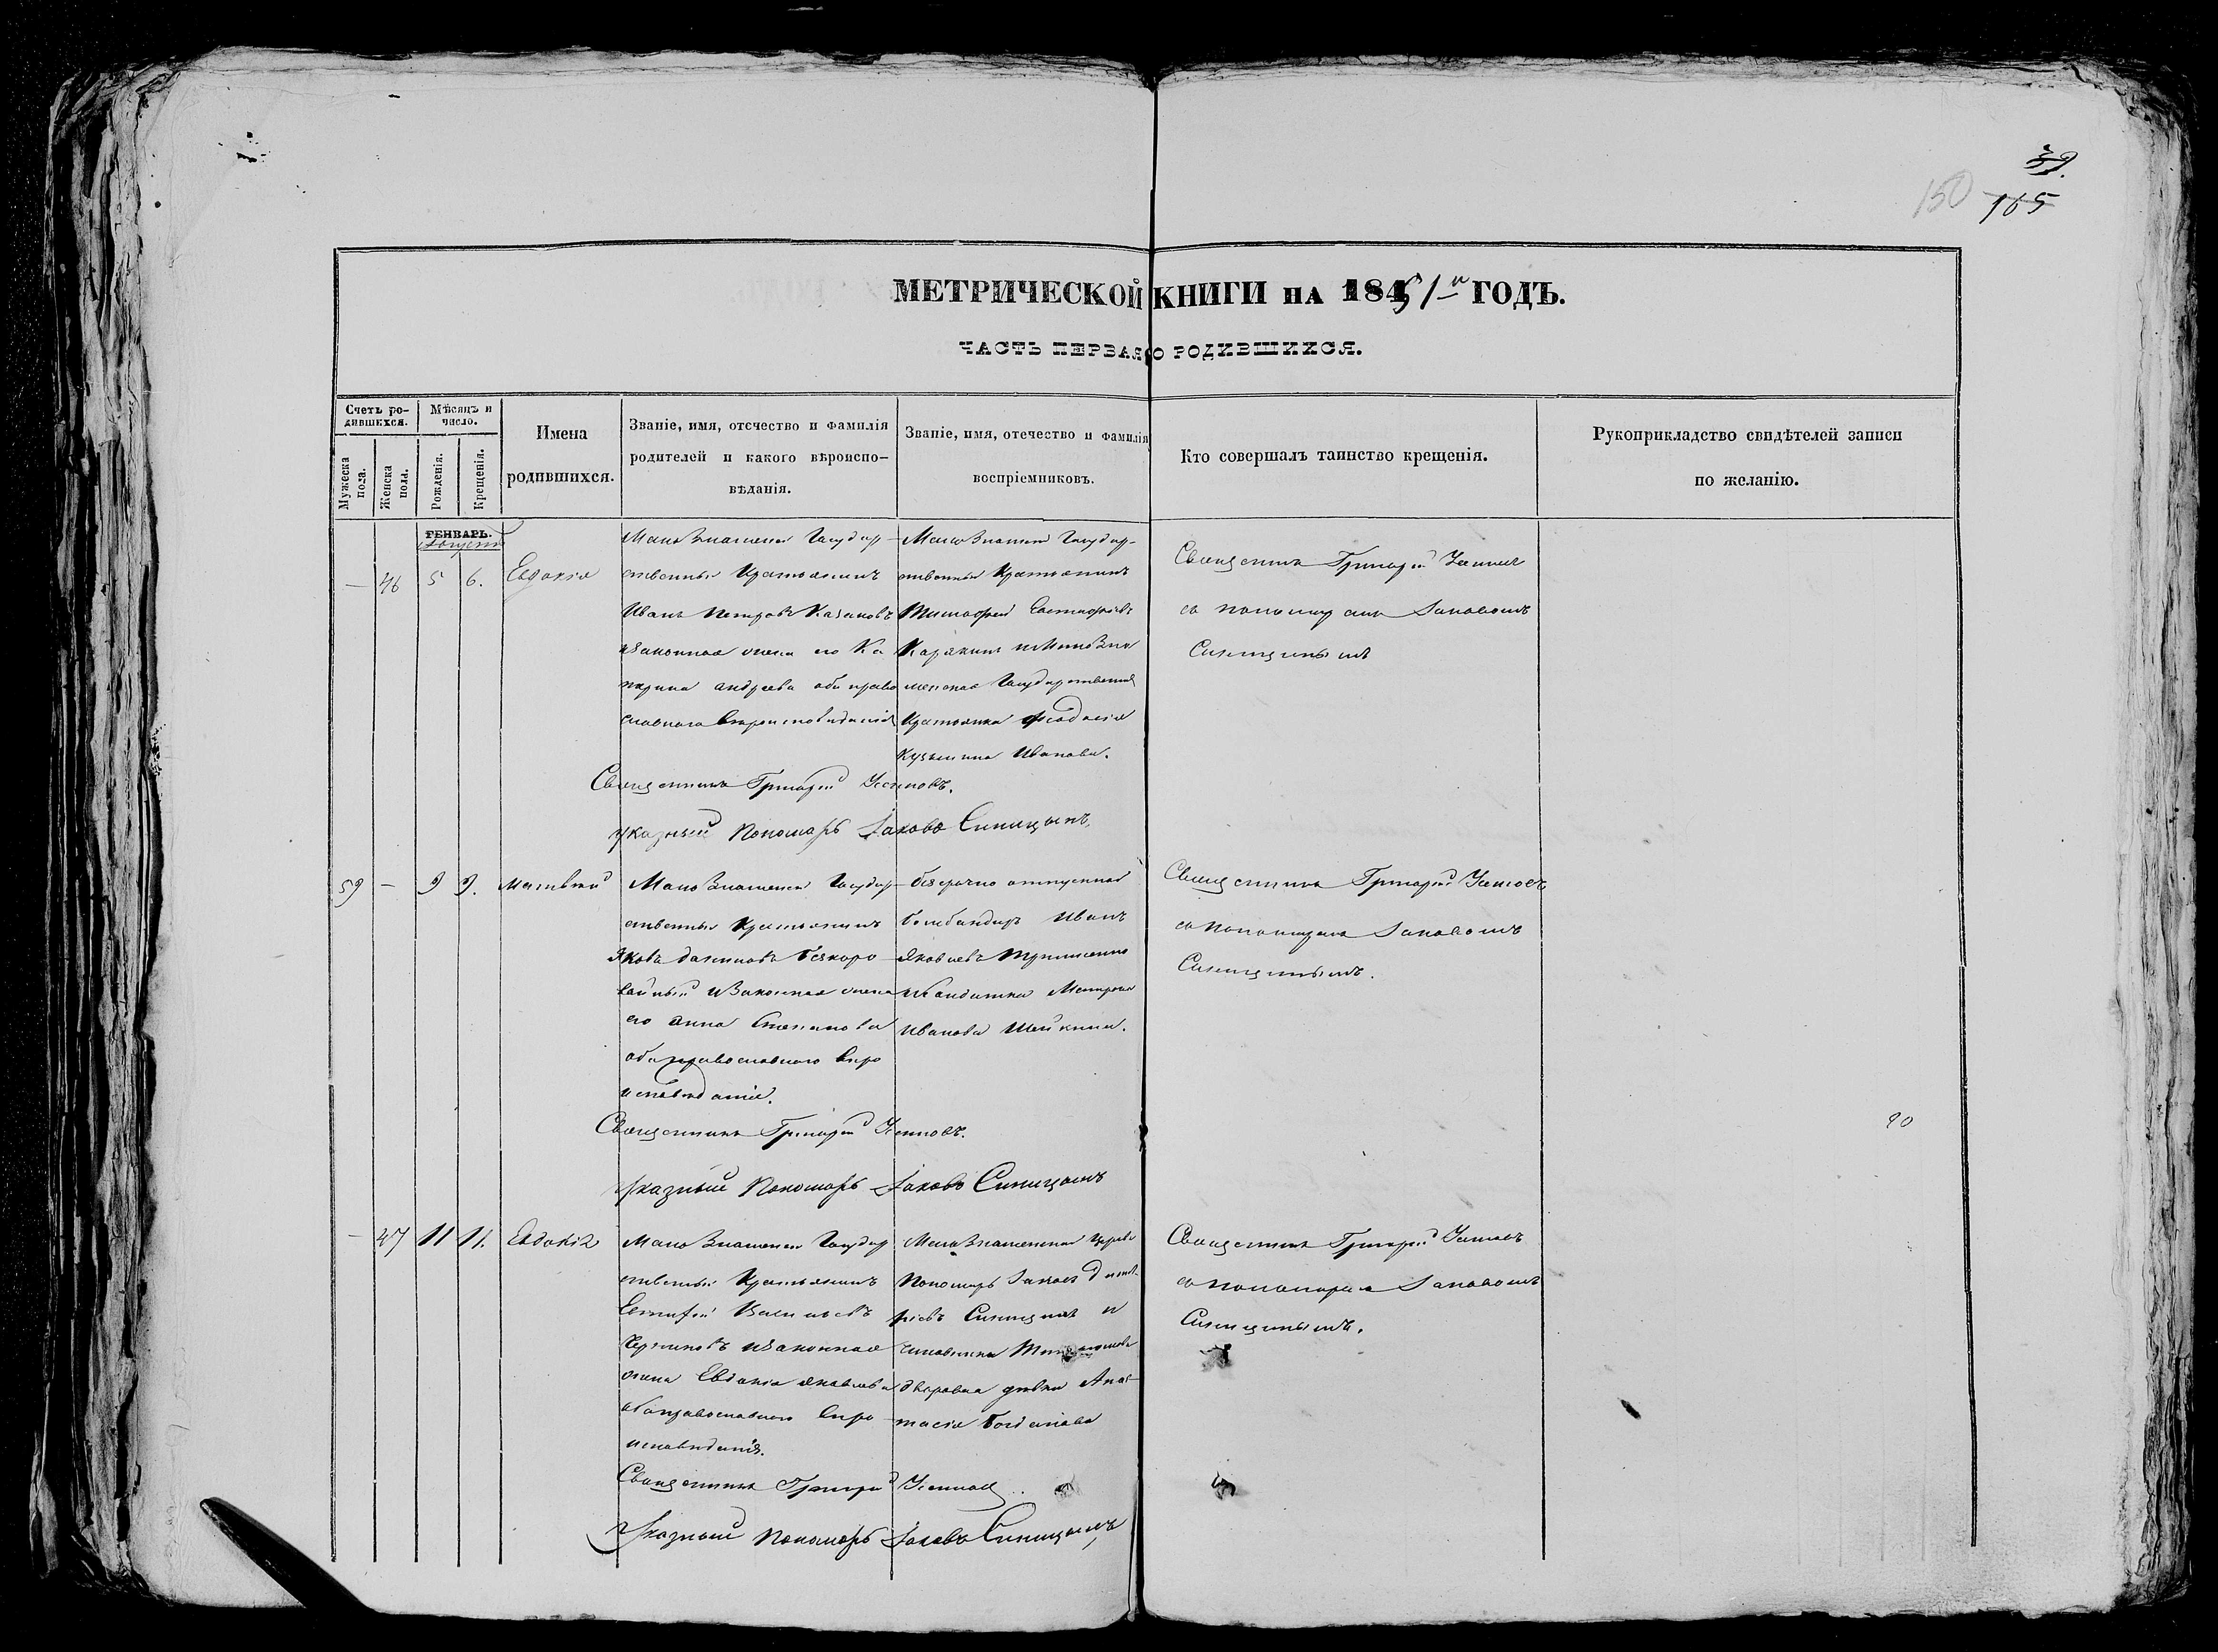 39.
150 165
МЕТРИЧЕСКОЙ КНИГИ НА 1851й ГОДЪ.
ЧАСТЬ ПЕРВАЯ О РОДИВШИХСЯ.
Счетъ родившихся.
Мужеска пола.
Женска пола.
Мѣсяцъ и число.
Рожденія.
Крещенія.
Имена родившихся.
Званіе, имя, отечество и фамилія
родителей и какого вѣроиспо-
вѣданія.
Званіе, имя, отечество и фамилія
воспріемниковъ.
Кто совершалъ таинство крещенія.
Рукоприкладство свидѣтелей записи
по желанію.
ГЕНВАРЬ.
— 46 5 6. Евдокія
Мало Знаменки Государ-
ственный Крестьянинъ
Иванъ Петровъ Казаковъ
изаконная жена его Ка
терина андреева оба право
славнаго Вероисповеданія
Мало Знаменки Государ-
ственный Крестьянинъ
Тимофей
Карякинъ и Мало Зна
менская Государственная
Крестьянка Феодосія
Кузьмина Иванова.
Священникъ Григорій
съ пономаремъ Іаковомъ
Синицынымъ
Священникъ Григорій Устиновъ.
Указный Пономарь Іаковъ Синицынъ
59 — 9 9. Матвей
Мало Знаменки Государ-
ственный Крестьянинъ
Яковъ
изаконная жена
его анна Степанова
оба православнаго Веро
исповеданія.
безсрочно отпускной
бомбандиръ Иванъ
Яковлевъ
исолдатка Матрона
Иванова Шейкина.
Священникъ Григорій
съ пономаремъ Іаковомъ
Синицынымъ.
Священникъ Григорій Устиновъ.
Указный Пономарь Іаковъ Синицынъ
90
— 47 11 11. Евдокія
Мало Знаменки Государ
ственный Крестьянинъ
изаконная
жена Евдокія Яковлева
оба православнаго Веро
исповеданія.
Мало Знаменской Церкви
Пономарь Іаковъ Димит-
ріевъ Синицынъ и
чиновника
дворовая девка Анас-
тасія Богданова
Священникъ Григорій
съ пономаремъ Іаковомъ
Синицынымъ.
Священникъ Григорій Устиновъ
Указный Пономарь Іаковъ Синицынъ